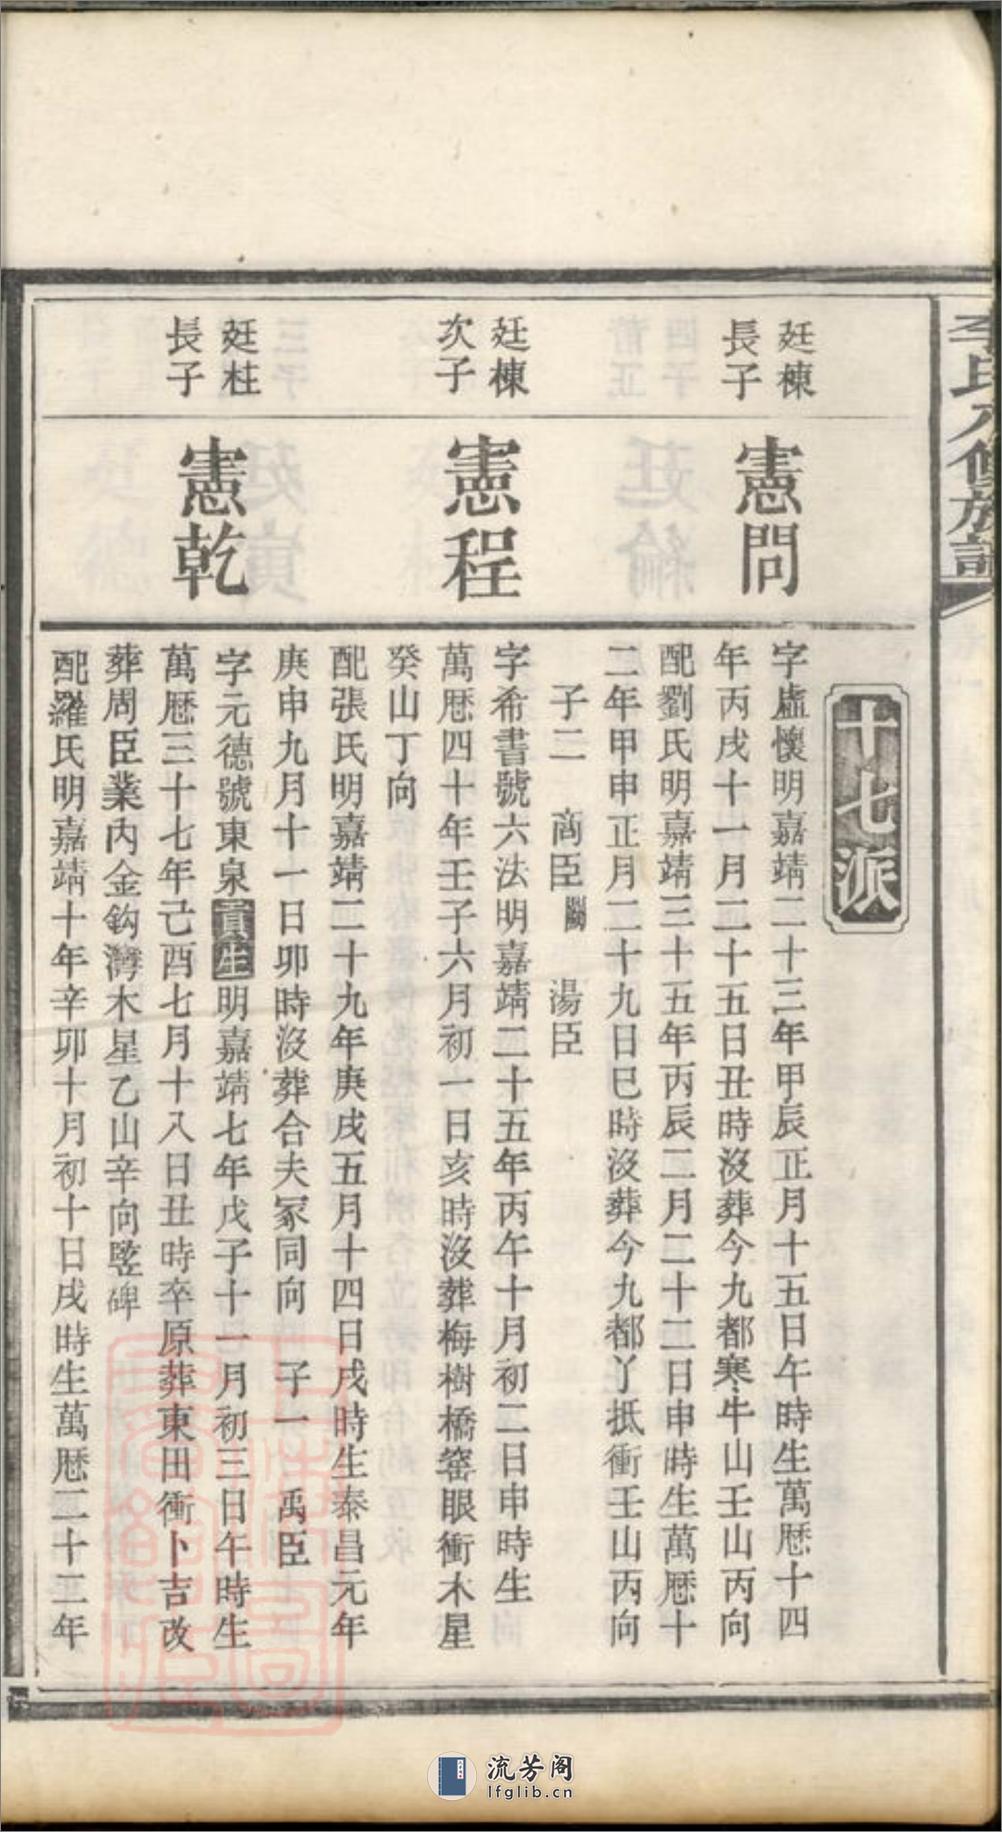 李氏八修族譜
十七派
廷棟
長子
憲問
字虛懷明嘉靖二十三年甲辰正月十五日午時生萬厯十四
年丙戌十一月二十五日丑時沒葬今九都寒牛山壬山丙向
配劉氏明嘉靖三十五年丙辰二月二十二日申時生萬厯十
二年甲申正月二十九日巳時沒葬今九都丫抵衝壬山丙向
子二 商臣 湯臣
廷棟
次子
憲程
字希書號六法明嘉靖二十五年丙午十月初二日申時生
萬厯四十年壬子六月初一日亥時沒葬梅樹橋窰眼衝木星
癸山丁向
配張氏明嘉靖二十九年庚戌五月十四日戌時生泰昌元年
庚申九月十一日卯時沒葬合夫冢同向 子一 禹臣
廷柱
長子
憲乾
字元德號東泉貢生明嘉靖七年戊子十一月初三日午時生
萬厯三十七年己酉七月十八日丑時卒原葬東田衝卜吉改
葬周臣業內金鈎灣木星乙山辛向竪碑
配羅氏明嘉靖十年辛卯十月初十日戌時生萬厯二十二年
流芳阁
lfglib.cn